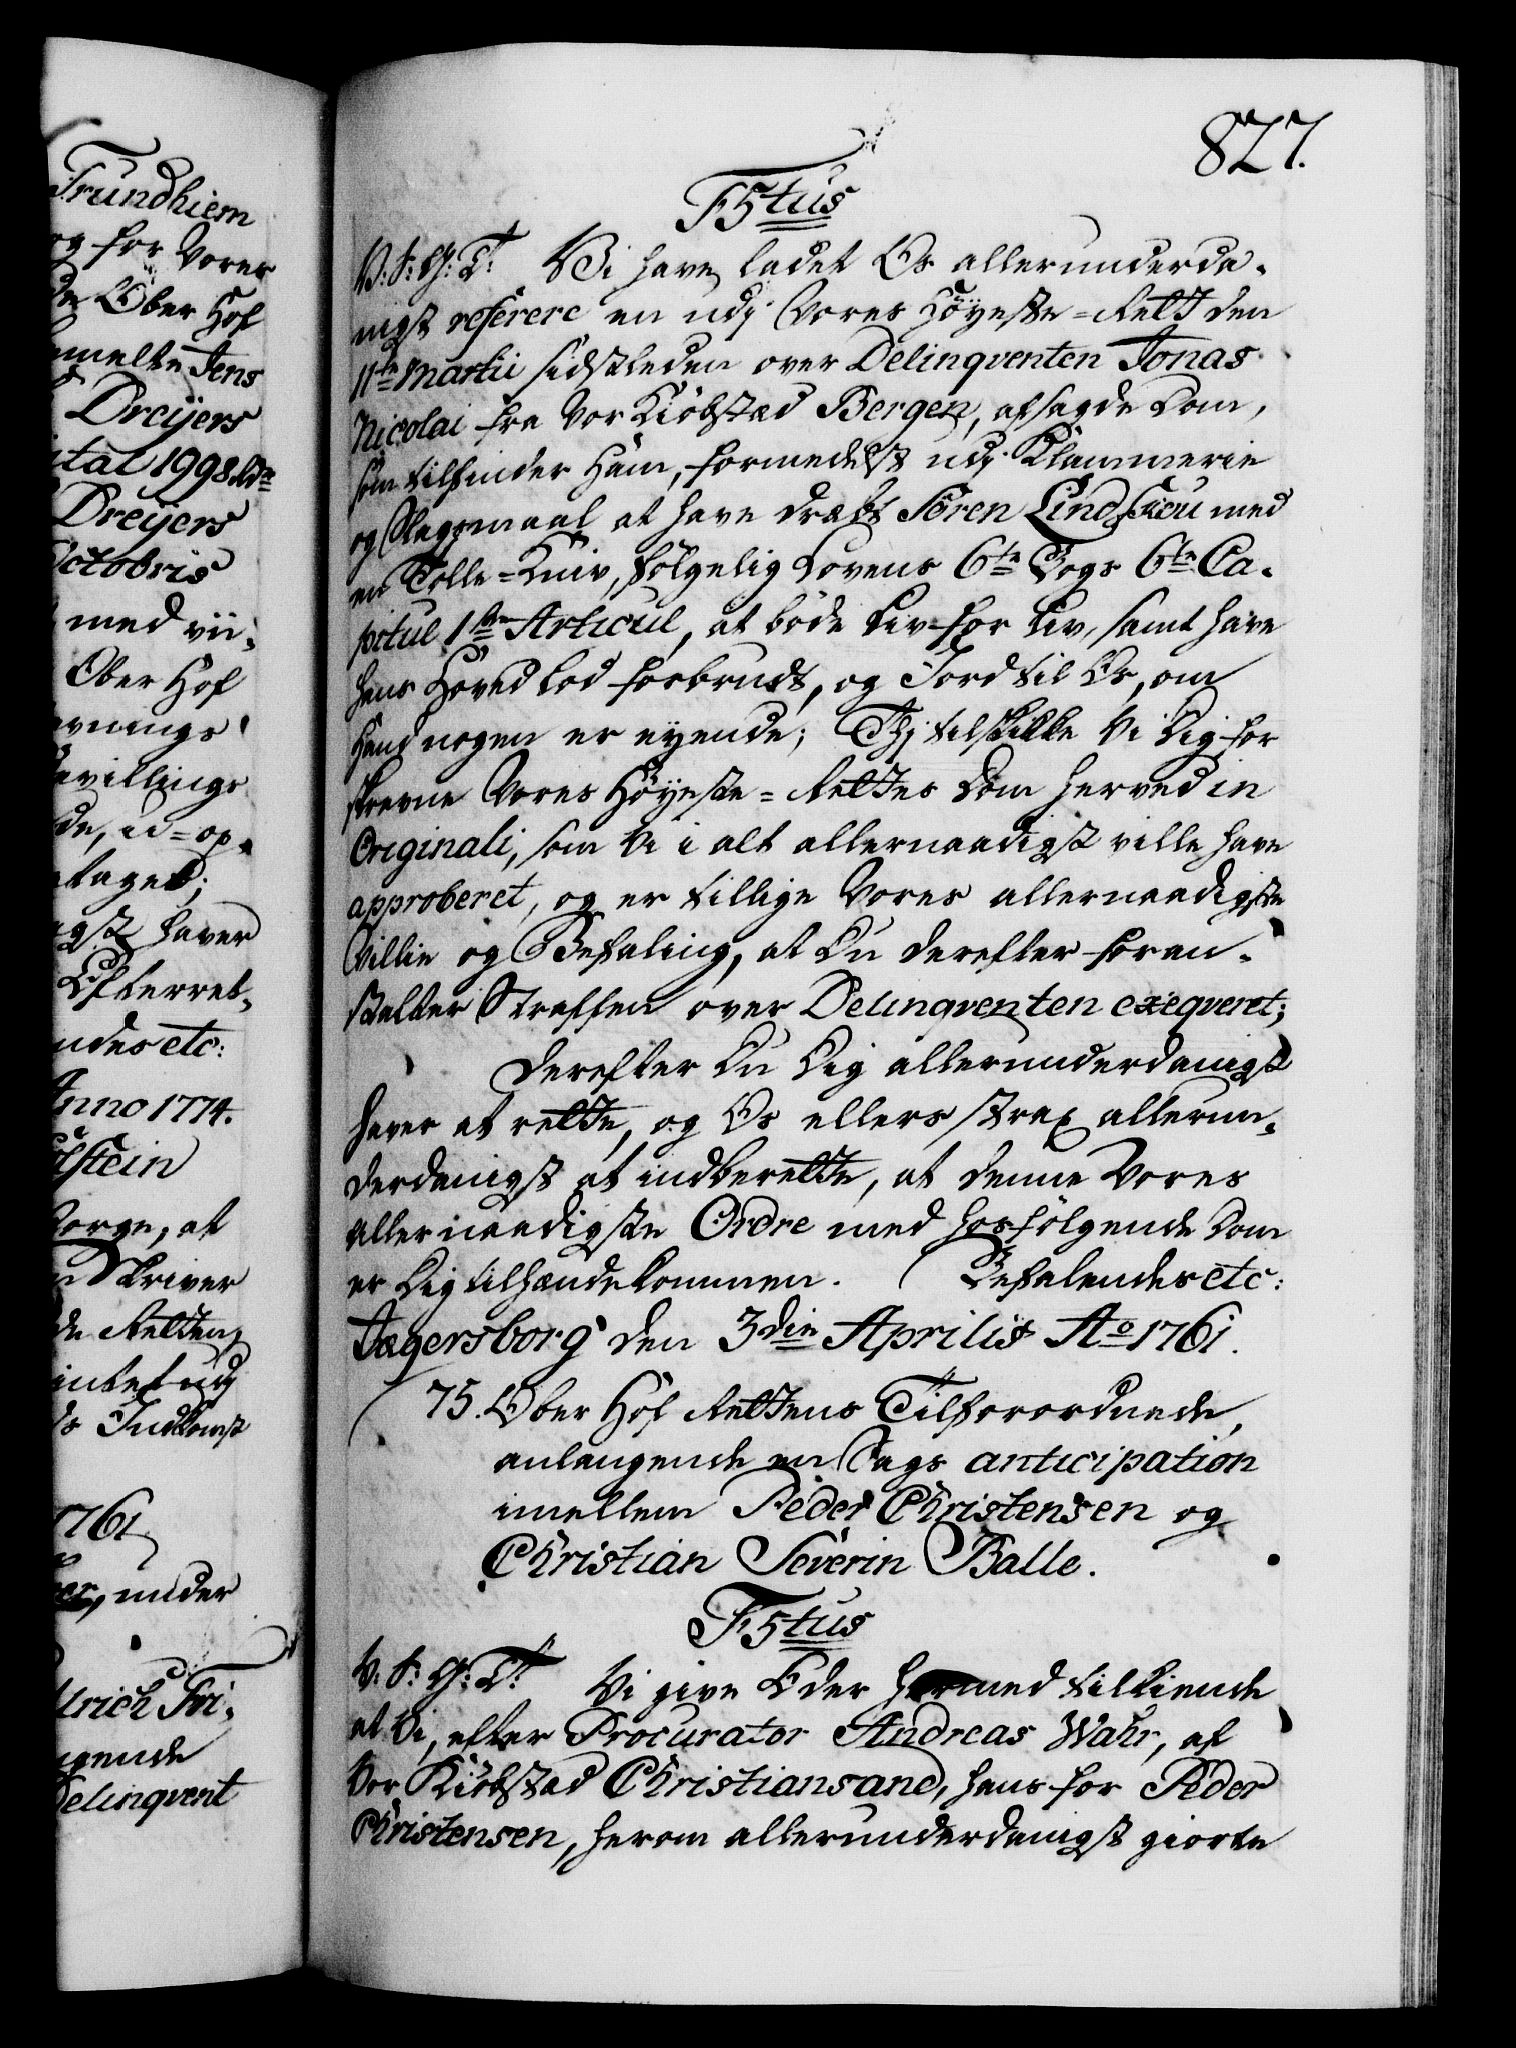 827.
F5tus
V. S: G: T: Vi have ladet Os allerunderda-
nigst referere en udj Vores Høyeste-Rett den
11te Martii sidstleden over Delinqventen Jonas
Nicolai fra Vor Kiöbstæd Bergen, afsagde Dom,
som tilfinder Ham, formedelst udj Klammerie
og Slagsmaal at have dræbt Sören Lind med
en Tolle-Kniv, følgelig Lovens 6te Bogs 6te Ca-
pitul 1ste Articul, at bøde Liv for Liv, samt have
hans Hoved lod forbrudt, og Jord til Os, om
Hand nogen er eyende; Thj tilskikke Vi Dig for
skrevne Vores Høyeste-Rettes Dom herved in
Originali, som Vi i alt allernaadigst ville have
approberet, og er tillige Vores allernaadigste
Villie og Befaling, at Du derefter foran-
stalter Straffen over Delinqventen exeqveret;
Derefter Du Dig allerunderdanigst
haver at rette, og Os ellers strax allerun-
derdanigst at indberette, at denne Vores
allernaadigste Ordre med hosfølgende Dom
er Dig tilhændekommen. Befalendes etc:
Jægersborg den 3die Aprilis Ao 1761.
75. Ober Hof Rettens Tilforordnede,
anlangende en Sags anticipation
imellem Peder Christensen og
Christian Severin Balle.
F5tus
V. S: G: T: Vi give Eder hermed tilkiende
at Vi, efter Procurator Andreas Wahr, af
Vor Kiöbstæd Christiansand, hans for Peder
Christensen, herom allerunderdanigst giorte